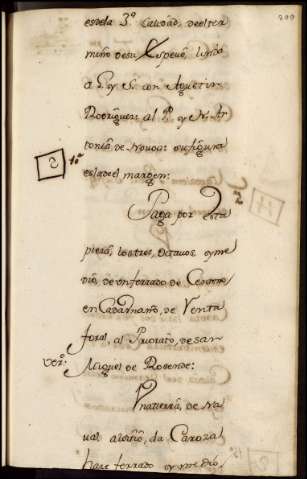 es de la 3ª Calidad, de el ter
mino de su Especie, linda
a L. y S. con Agustin
Rodriguez: al P. y N. An
tonia de Novoa: su figura
es la del margen:
Paga por Esta
pieza, los tres, Octavos y me
dio, de un ferrado de Centeno
en Cadarnaño, de Renta
foral, al Priorato, de San
Miguel de Rosende:
Una tierra, de Na
val al sitio, da Caroza
hace ferrado y medio